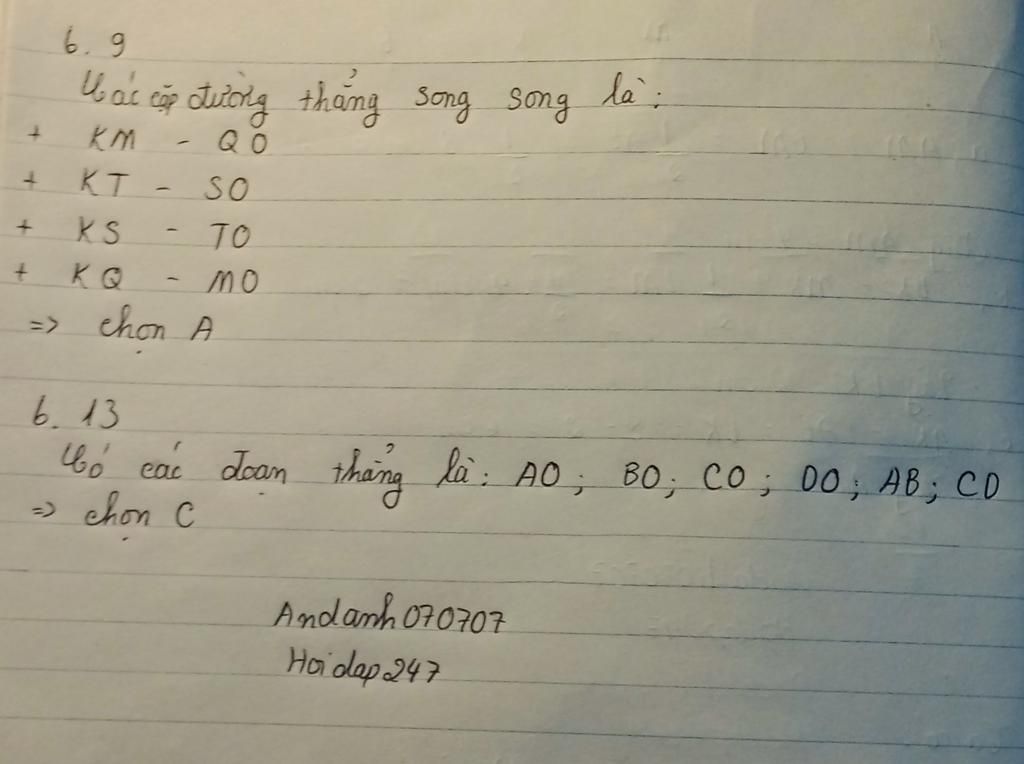 6. 9
Các cặp đường thẳng song song là:
+ KM - QO
+ KT - SO
+ KS - TO
+ KQ - MO
=> chọn A
6. 13
Có các đoạn thẳng là: AO; BO; CO; DO; AB; CD
=> chọn C
Andanh070707
Hoidap247